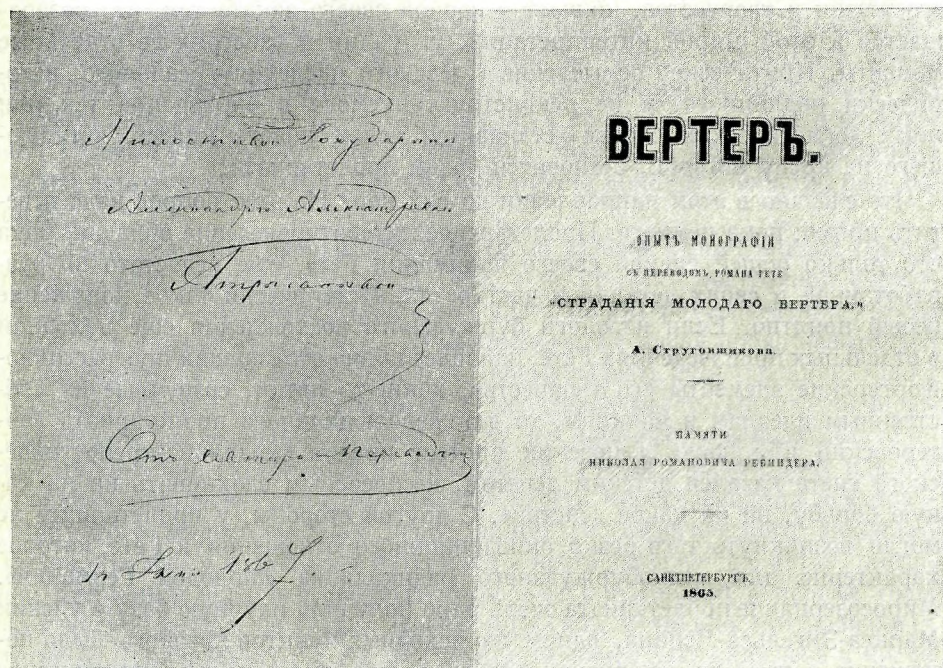 Милостивой Государыне
Александре Александровне
Отъ Автора-Переводчика
1867.
ВЕРТЕРЪ.
ОПЫТЪ МОНОГРАФІИ
СЪ ПЕРЕВОДОМЪ РОМАНА ГЕТЕ
"СТРАДАНІЯ МОЛОДАГО ВЕРТЕРА."
А. Струговщикова.
ПАМЯТИ
НИКОЛАЯ РОМАНОВИЧА РЕБИНДЕРА.
САНКТПЕТЕРБУРГЪ.
1865.